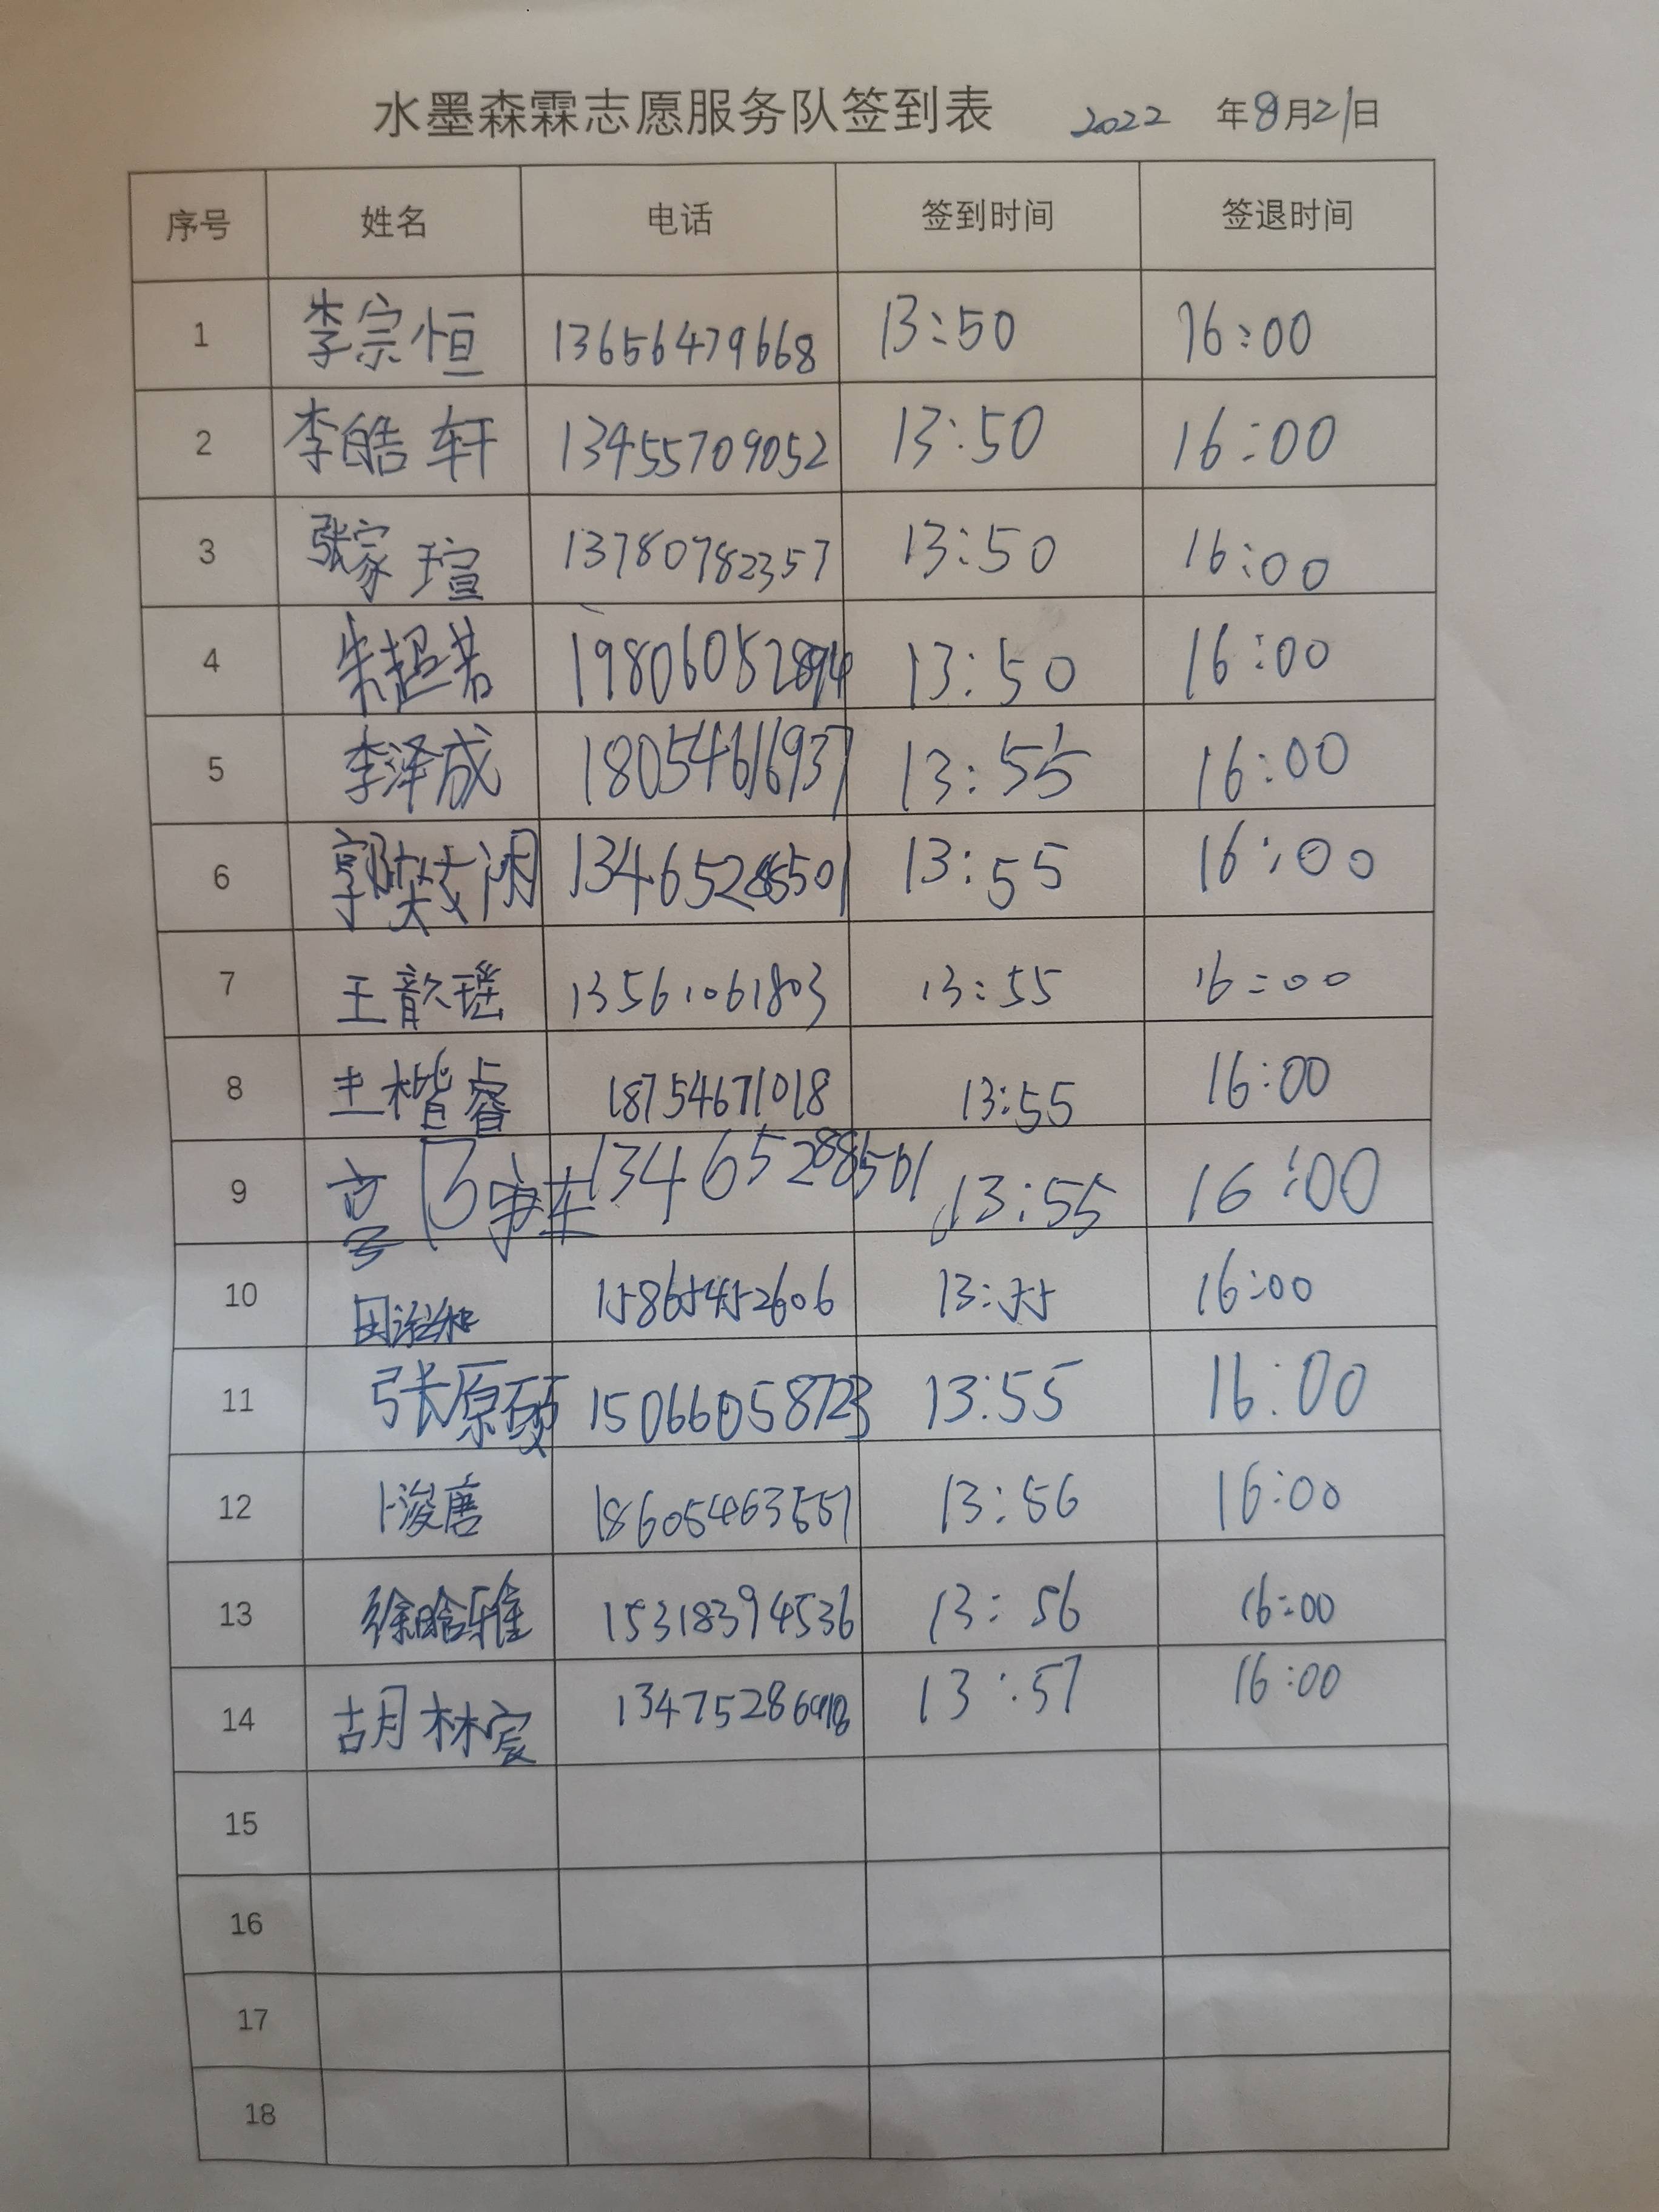 水墨森霖志愿服务队签到表 2022 年8月21日
序号 姓名 电话 签到时间 签退时间
1 李宗恒 13656479668 13:50 16:00
2 李皓轩 13455709052 13:50 16:00
3 张家瑄 13780782357 13:50 16:00
4 朱超若 19806052894 13:50 16:00
5 李泽成 18054616937 13:55 16:00
6 13465288501 13:55 16:00
7 王歆瑶 13561061803 13:55 16:00
8 王楷睿 18754671018 13:55 16:00
9 13465288501 13:55 16:00
10 15865452606 13:55 16:00
11 张原硕 15066058723 13:55 16:00
12 卜浚唐 18605463557 13:56 16:00
13 徐晗雅 15318394536 13:56 16:00
14 胡林宸 13:57 16:00
15
16
17
18